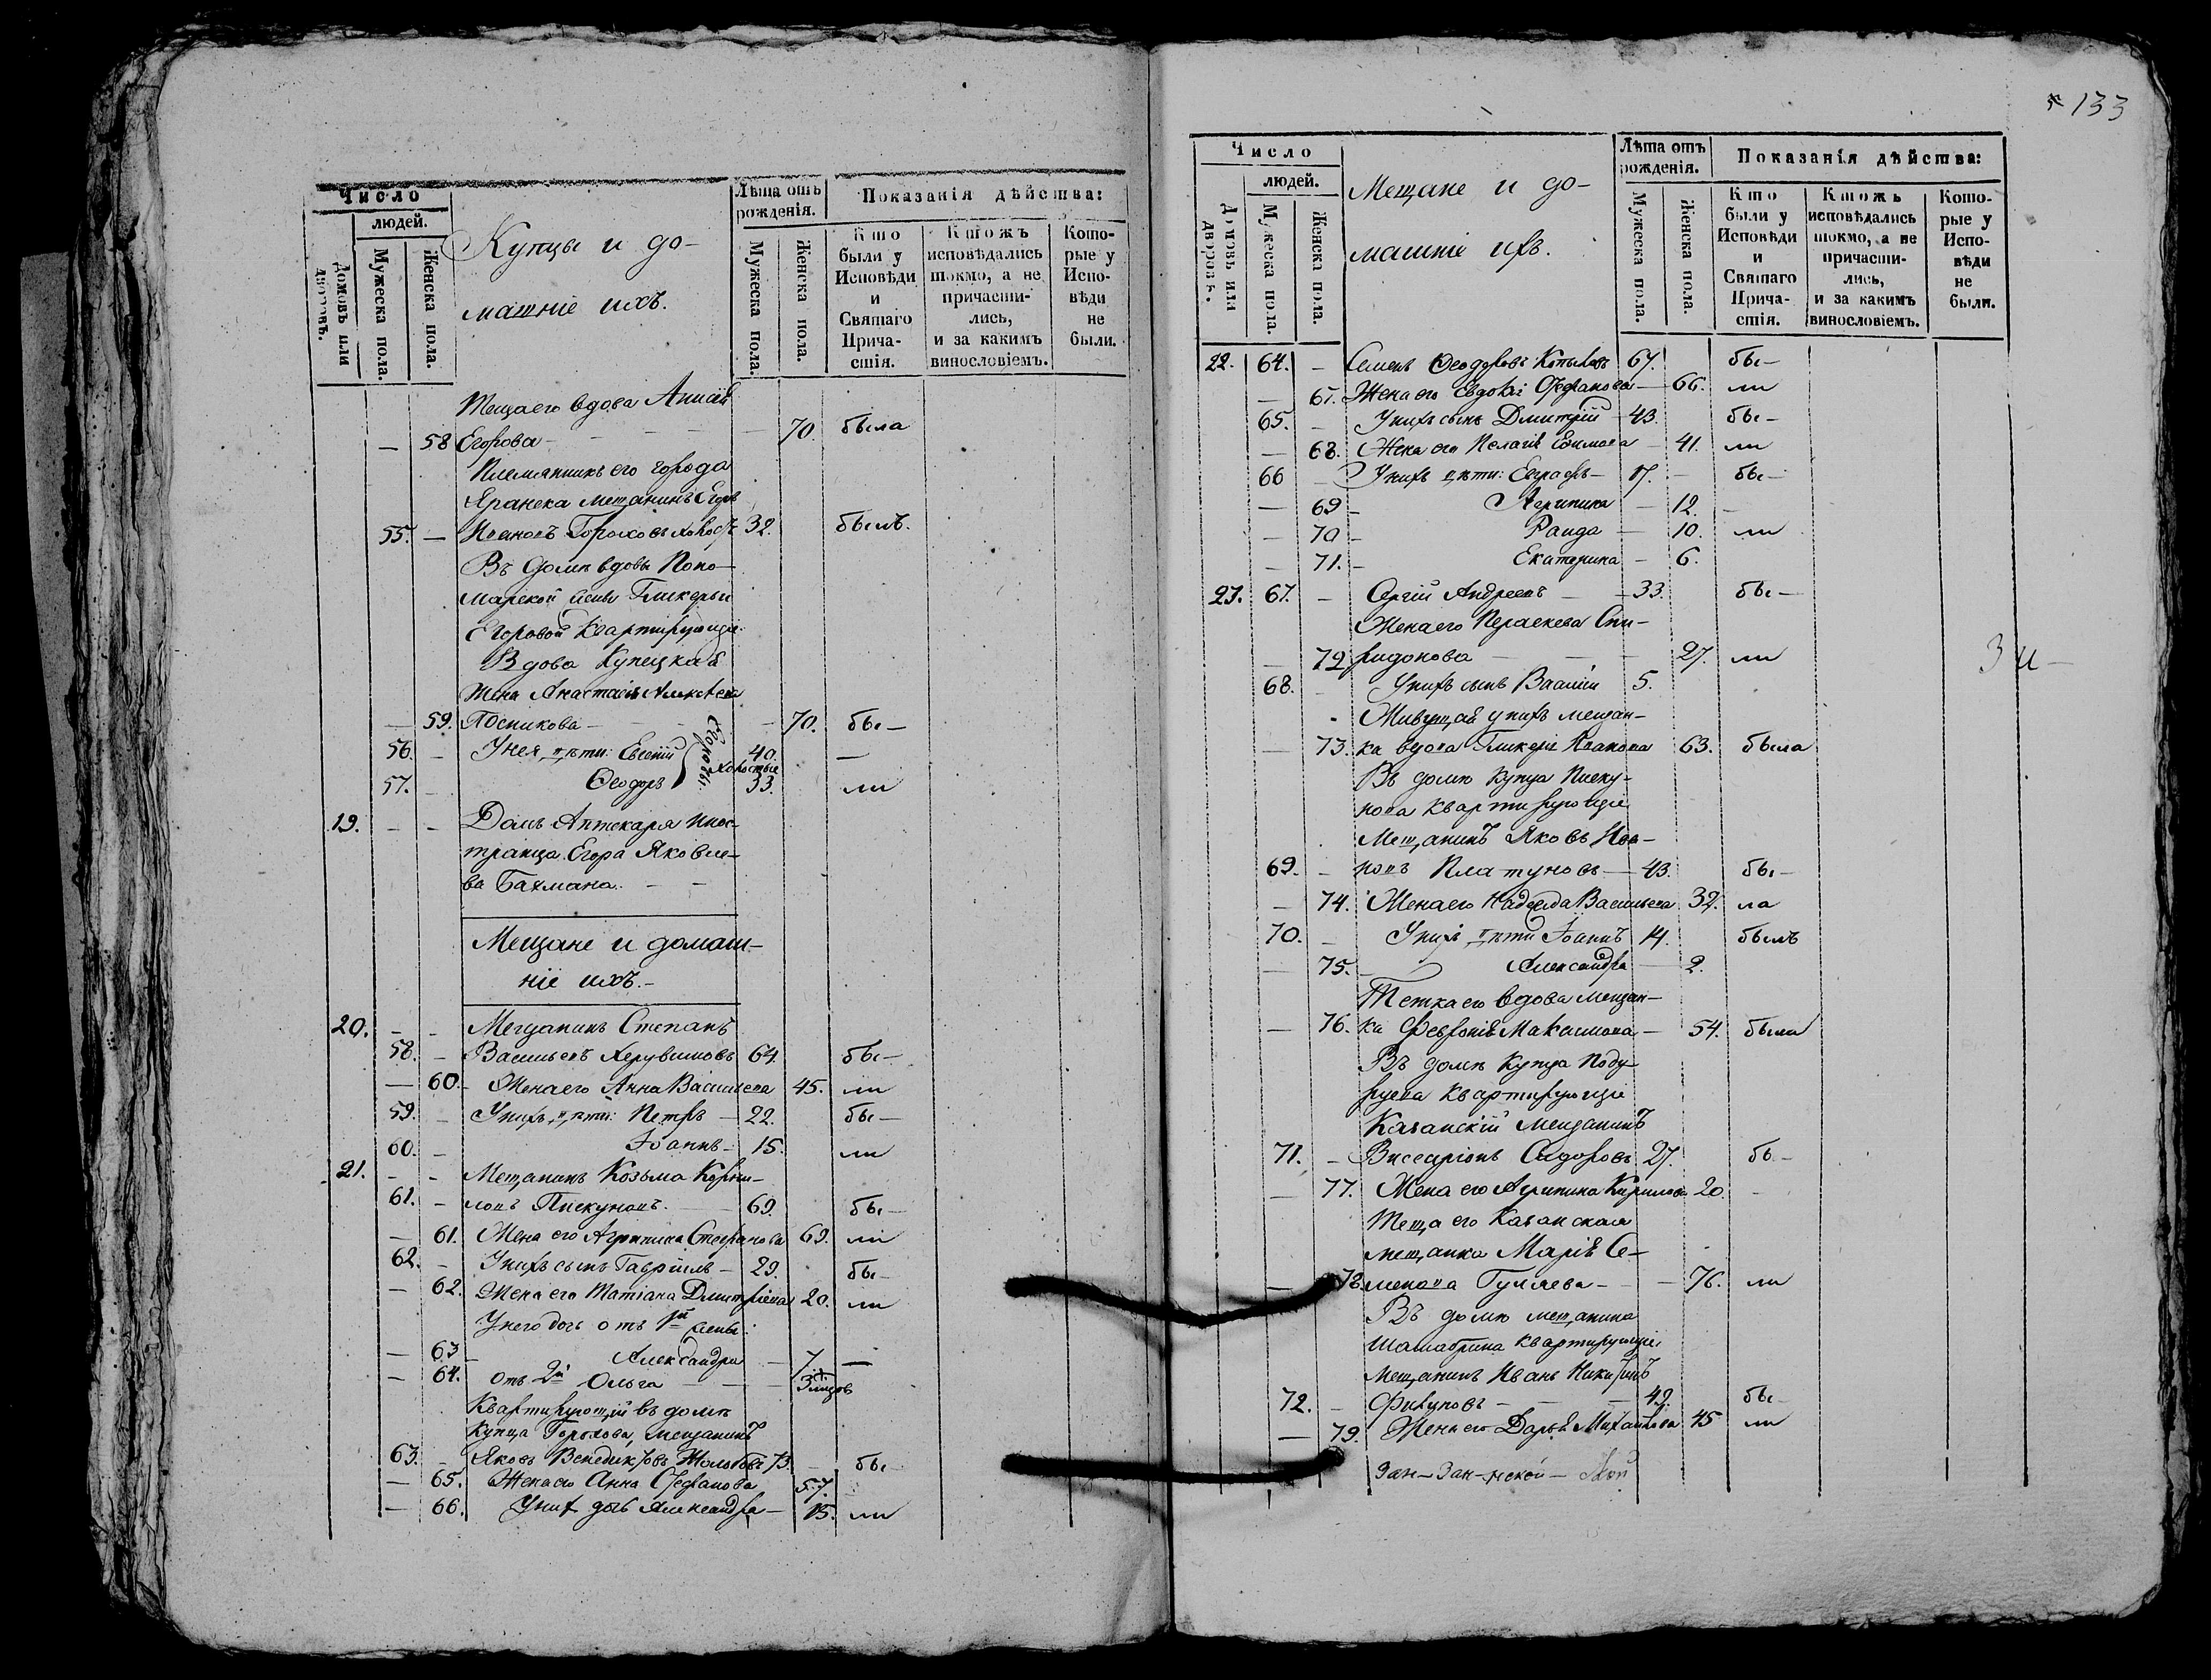 Число
людей.
Домовъ или дворовъ.
Мужеска пола.
Женска пола.
Купцы и до-
машніе ихъ.
Лѣта отъ рожденія.
Мужеска пола.
Женска пола.
Показанія дѣйства:
Кто были у Исповѣди и Святаго Прича-стія.
Ктожъ исповѣдались токмо, а не причасти-лись, и за какимъ винословіемъ.
Кото-рые у Испо-вѣди не были.
Теща его вдова
— 58 Егорова — 70 была
Племянникъ его города
Яранска мещанинъ Егоръ
55. — Ивановъ Гороховъ холостъ 32. былъ.
Въ домѣ вдовы Поно-
марской жены Гликерьи
Егоровой квартирующіе
Вдова купецкая
жена Анастасія Алексѣева
— 59. — 70. бы —
56. — У нея дѣти: Евгеній 40. —
Егоровы. холостые
57. — Ѳеодоръ 33. ли
19. — — Домъ Аптекаря инос-
транца Егора Яковле-
ва Бахмана. — —
Мещане и домаш-
ніе ихъ. —
20. — — Мещанинъ Степанъ
58. — Васильевъ Херувимовъ 64. бы —
— 60. Жена его Анна Васильева 45. ли
59. — У нихъ дѣти: Петръ — 22. бы —
60. — Іоаннъ — 15. ли
21. — — Мещанинъ Козьма Корни-
61. — ловъ Пискуновъ. — 69. бы —
— 61. Жена его Агрипина Стефанова 69. ли
62. — У нихъ сынъ Гавріилъ — 29. бы —
— 62. Жена его Татіана Дмитріева 20. ли
У него дочь отъ 1й жены:
— 63 — Александра — 7 —
— 64. отъ 2й Ольга — 3 мѣсцов
Квартирующій въ домѣ
купца Горохова, мещанинъ
63. — Яковъ Венедиктовъ 73. — бы —
— 65. Жена его Анна Стефанова 57.
— 66. У них дочь Александра — 15. ли
133
Число
людей.
Домовъ или дворовъ.
Мужеска пола.
Женска пола.
Мещане и до-
машніе ихъ.
Лѣта отъ рожденія.
Мужеска пола.
Женска пола.
Показанія дѣйства:
Кто были у Исповѣди и Святаго Прича-стія.
Ктожъ исповѣдались токмо, а не причасти-лись, и за какимъ винословіемъ.
Кото-рые у Испо-вѣди не были.
22. 64. — Семенъ Ѳеодоровъ Копыловъ 67. бы —
— 67. Жена его Евдокія Стефанова — 66. ли
65. — У нихъ сынъ Дмитрій — 43. бы —
— 68. Жена его Пелагія Ефимова — 41. ли
66 — У нихъ дѣти: Евграфъ — 17. — бы —
— 69 — Агрипина — 12. —
— 70 — Раида — 10. ли
— 71. — Екатерина — 6.
23. 67. — Сергій Андреевъ — 33. бы —
Жена его Параскева Спи-
— 72 ридонова — 27. ли
68. — У нихъ сынъ Василій 5.
Живущая у нихъ мещан-
— 73. ка вдова Гликерія Иванова 63. была
Въ домѣ купца Писку-
нова квартирующіе
Мещанинъ Яковъ Ива-
69. — новъ Платуновъ — 43. бы —
— 74. Жена его Надежда Васильева 32. ла
70. — У нихъ дѣти Іоаннъ 14. былъ
— 75. — Александра — 2.
Тетка его вдова мещан-
— 76. ка Февронія Максимова — 54. были
Въ домѣ купца Поду-
руева квартирующіе
Казанскій мещанинъ
71. — Висаріонъ Сидоровъ 27. бы —
— 77. Жена его Агрипина Кирилова 20. —
Теща его Казанская
мещанка Марія Се-
— 78. менова Гуляева — 76. ли
Въ домѣ мещанина
Шамабрина квартирующіе
Мещанинъ Иванъ Никитинъ
72. — 42. бы —
— 79. Жена его Дарья Михайлова 45 ли